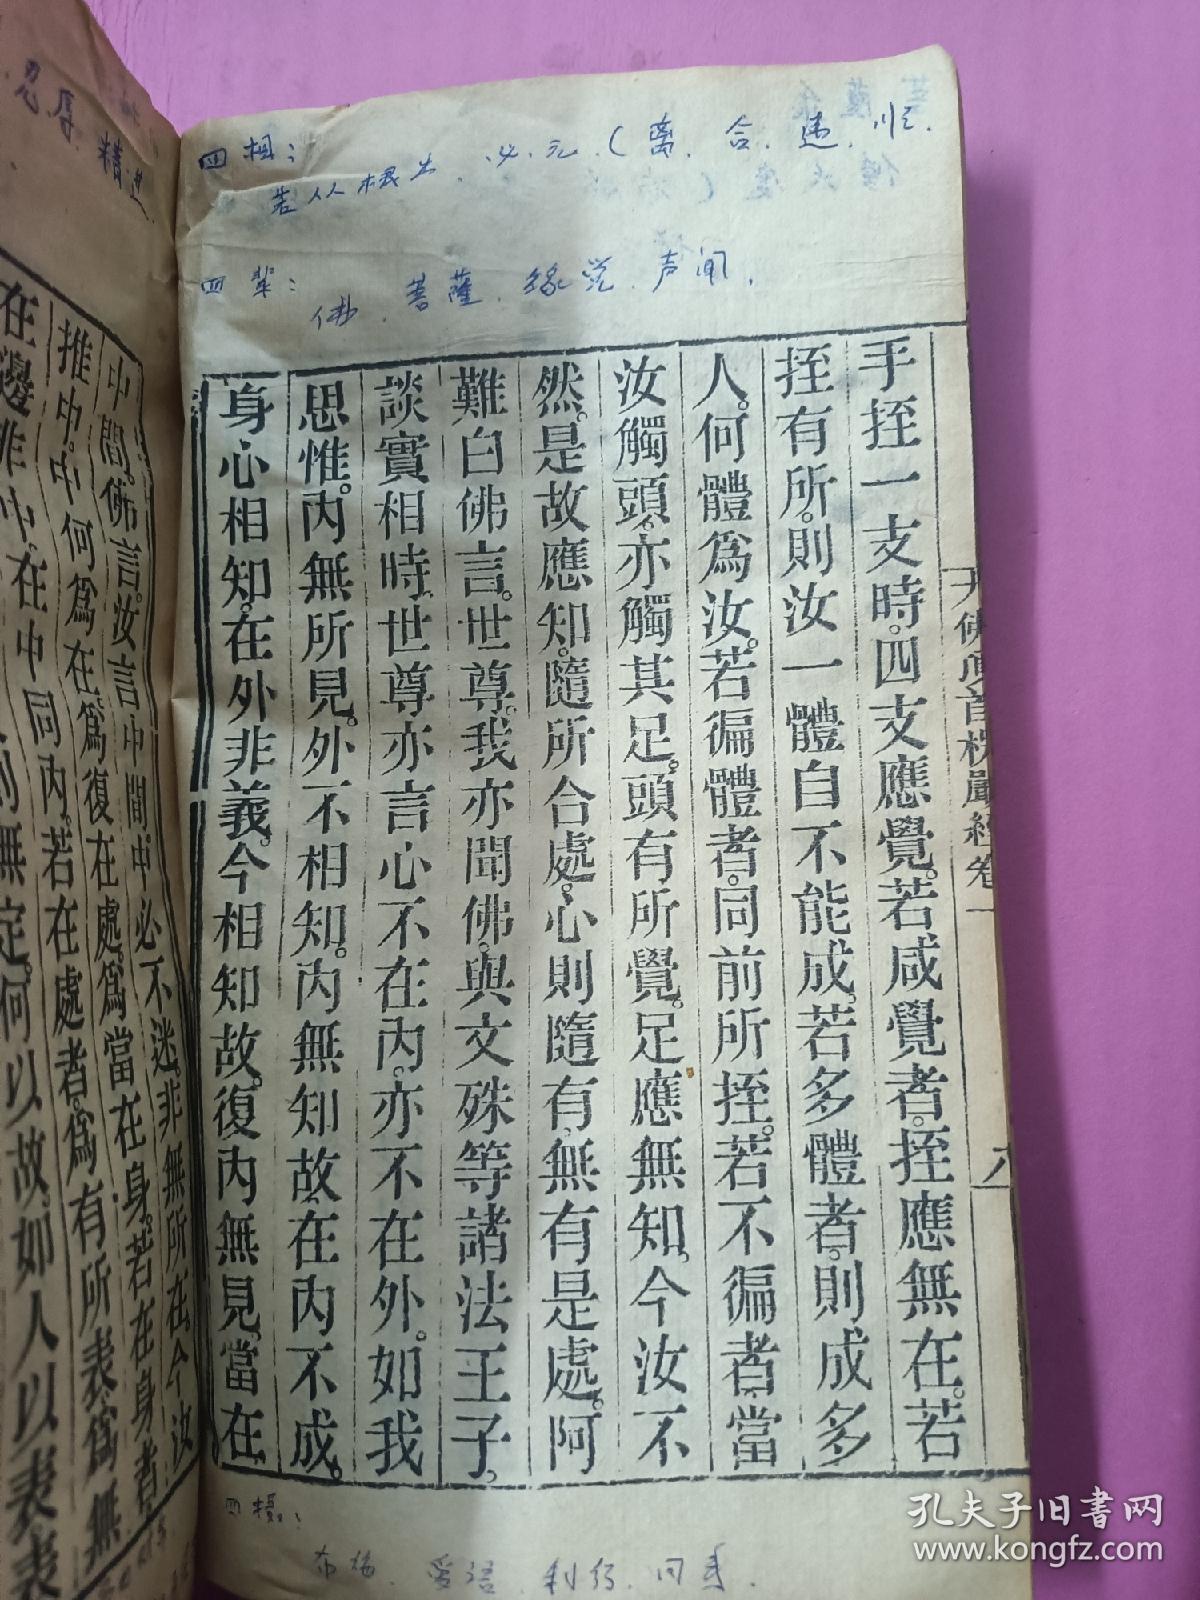 四相：
若从根出.必无.(离.合.违.顺.
四辈：
佛.菩薩.缘觉.声闻.
大佛頂首楞嚴經卷一
六
手挃一支時。四支應覺。若咸覺者。挃應無在。若
挃有所。則汝一體自不能成。若多體者。則成多
人。何體爲汝。若徧體者。同前所挃。若不徧者。當
汝觸頭。亦觸其足。頭有所覺。足應無知。今汝不
然。是故應知。隨所合處。心則隨有。無有是處。阿
難白佛言。世尊。我亦聞佛。與文殊等諸法王子。
談實相時。世尊亦言心不在內。亦不在外。如我
思惟。內無所見。外不相知。內無知故。在內不成。
身心相知。在外非義。今相知故。復內無見。當在
四攝：
布施.爱语.利行.同事.
忍辱.精进.
中間。佛言。汝言中間。中必不迷。非無所在。今汝
推中。中何爲在。爲復在處。爲當在身。若在身者。
在邊非中。在中同內。若在處者。爲有所表。爲無
則無定。何以故。如人以表。表
孔夫子旧书网
www.kongfz.com